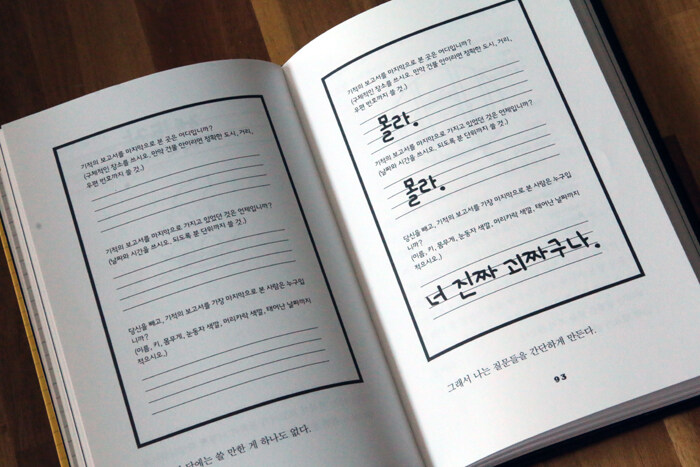 기적의 보고서를 마지막으로 본 곳은 어디입니까?
(구체적인 장소를 쓰시오. 만약 건물 안이라면 정확한 도시, 거리,
우편 번호까지 쓸 것.)
기적의 보고서를 마지막으로 가지고 있었던 것은 언제입니까?
(날짜와 시간을 쓰시오. 되도록 분 단위까지 쓸 것.)
당신을 빼고, 기적의 보고서를 가장 마지막으로 본 사람은 누구입
니까?
(이름, 키, 몸무게, 눈동자 색깔, 머리카락 색깔, 태어난 날짜까지
적으시오.)
단에는 쓸 만한 게 하나도 없다.
기적의 보고서를 마지막으로 본 곳은 어디입니까?
(구체적인 장소를 쓰시오. 만약 건물 안이라면 정확한 도시, 거리,
우편 번호까지 쓸 것.)
몰라.
기적의 보고서를 마지막으로 가지고 있었던 것은 언제입니까?
(날짜와 시간을 쓰시오. 되도록 분 단위까지 쓸 것.)
몰라.
당신을 빼고, 기적의 보고서를 가장 마지막으로 본 사람은 누구입
니까?
(이름, 키, 몸무게, 눈동자 색깔, 머리카락 색깔, 태어난 날짜까지
적으시오.)
너 진짜 괴짜구나.
그래서 나는 질문들을 간단하게 만든다.
93